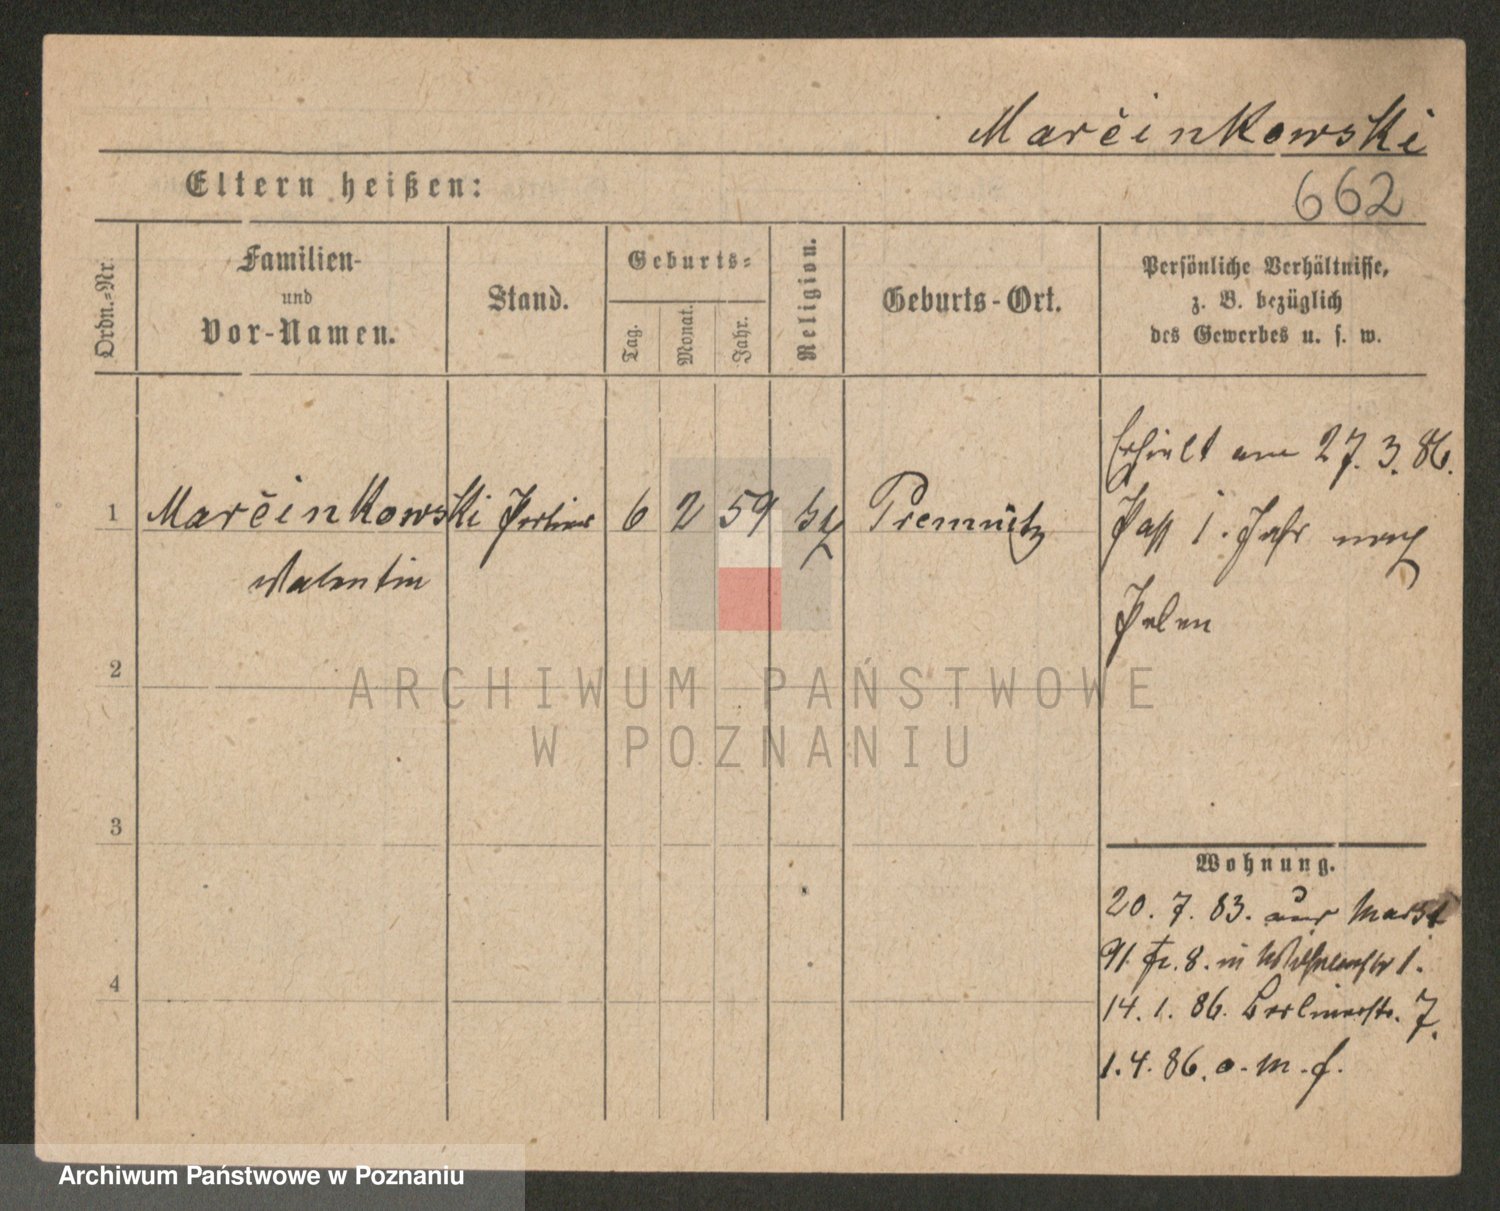 Marčinkowski
Eltern heißen:
662
Ordn.-Nr.
Familien-
und
Vor-Namen.
Stand.
Geburts-
Tag.
Monat.
Jahr.
Religion.
Geburts-Ort.
Persönliche Verhältnisse,
z. B. bezüglich
des Gewerbes u. s. w.
1 Marčinkowski 6 2 59 Premnitz
Valentin
Erhielt am 27. 3. 86.
Pass 1. Jahr nach
Polen
2
3
4
Wohnung.
20. 7. 83. aus
91. Fr. 8. in Wilhelmstr 1.
14. 1. 86. Berlinerstr. 7.
1. 4. 86. o. M. f.
ARCHIWUM PAŃSTWOWE
W POZNANIU
Archiwum Państwowe w Poznaniu